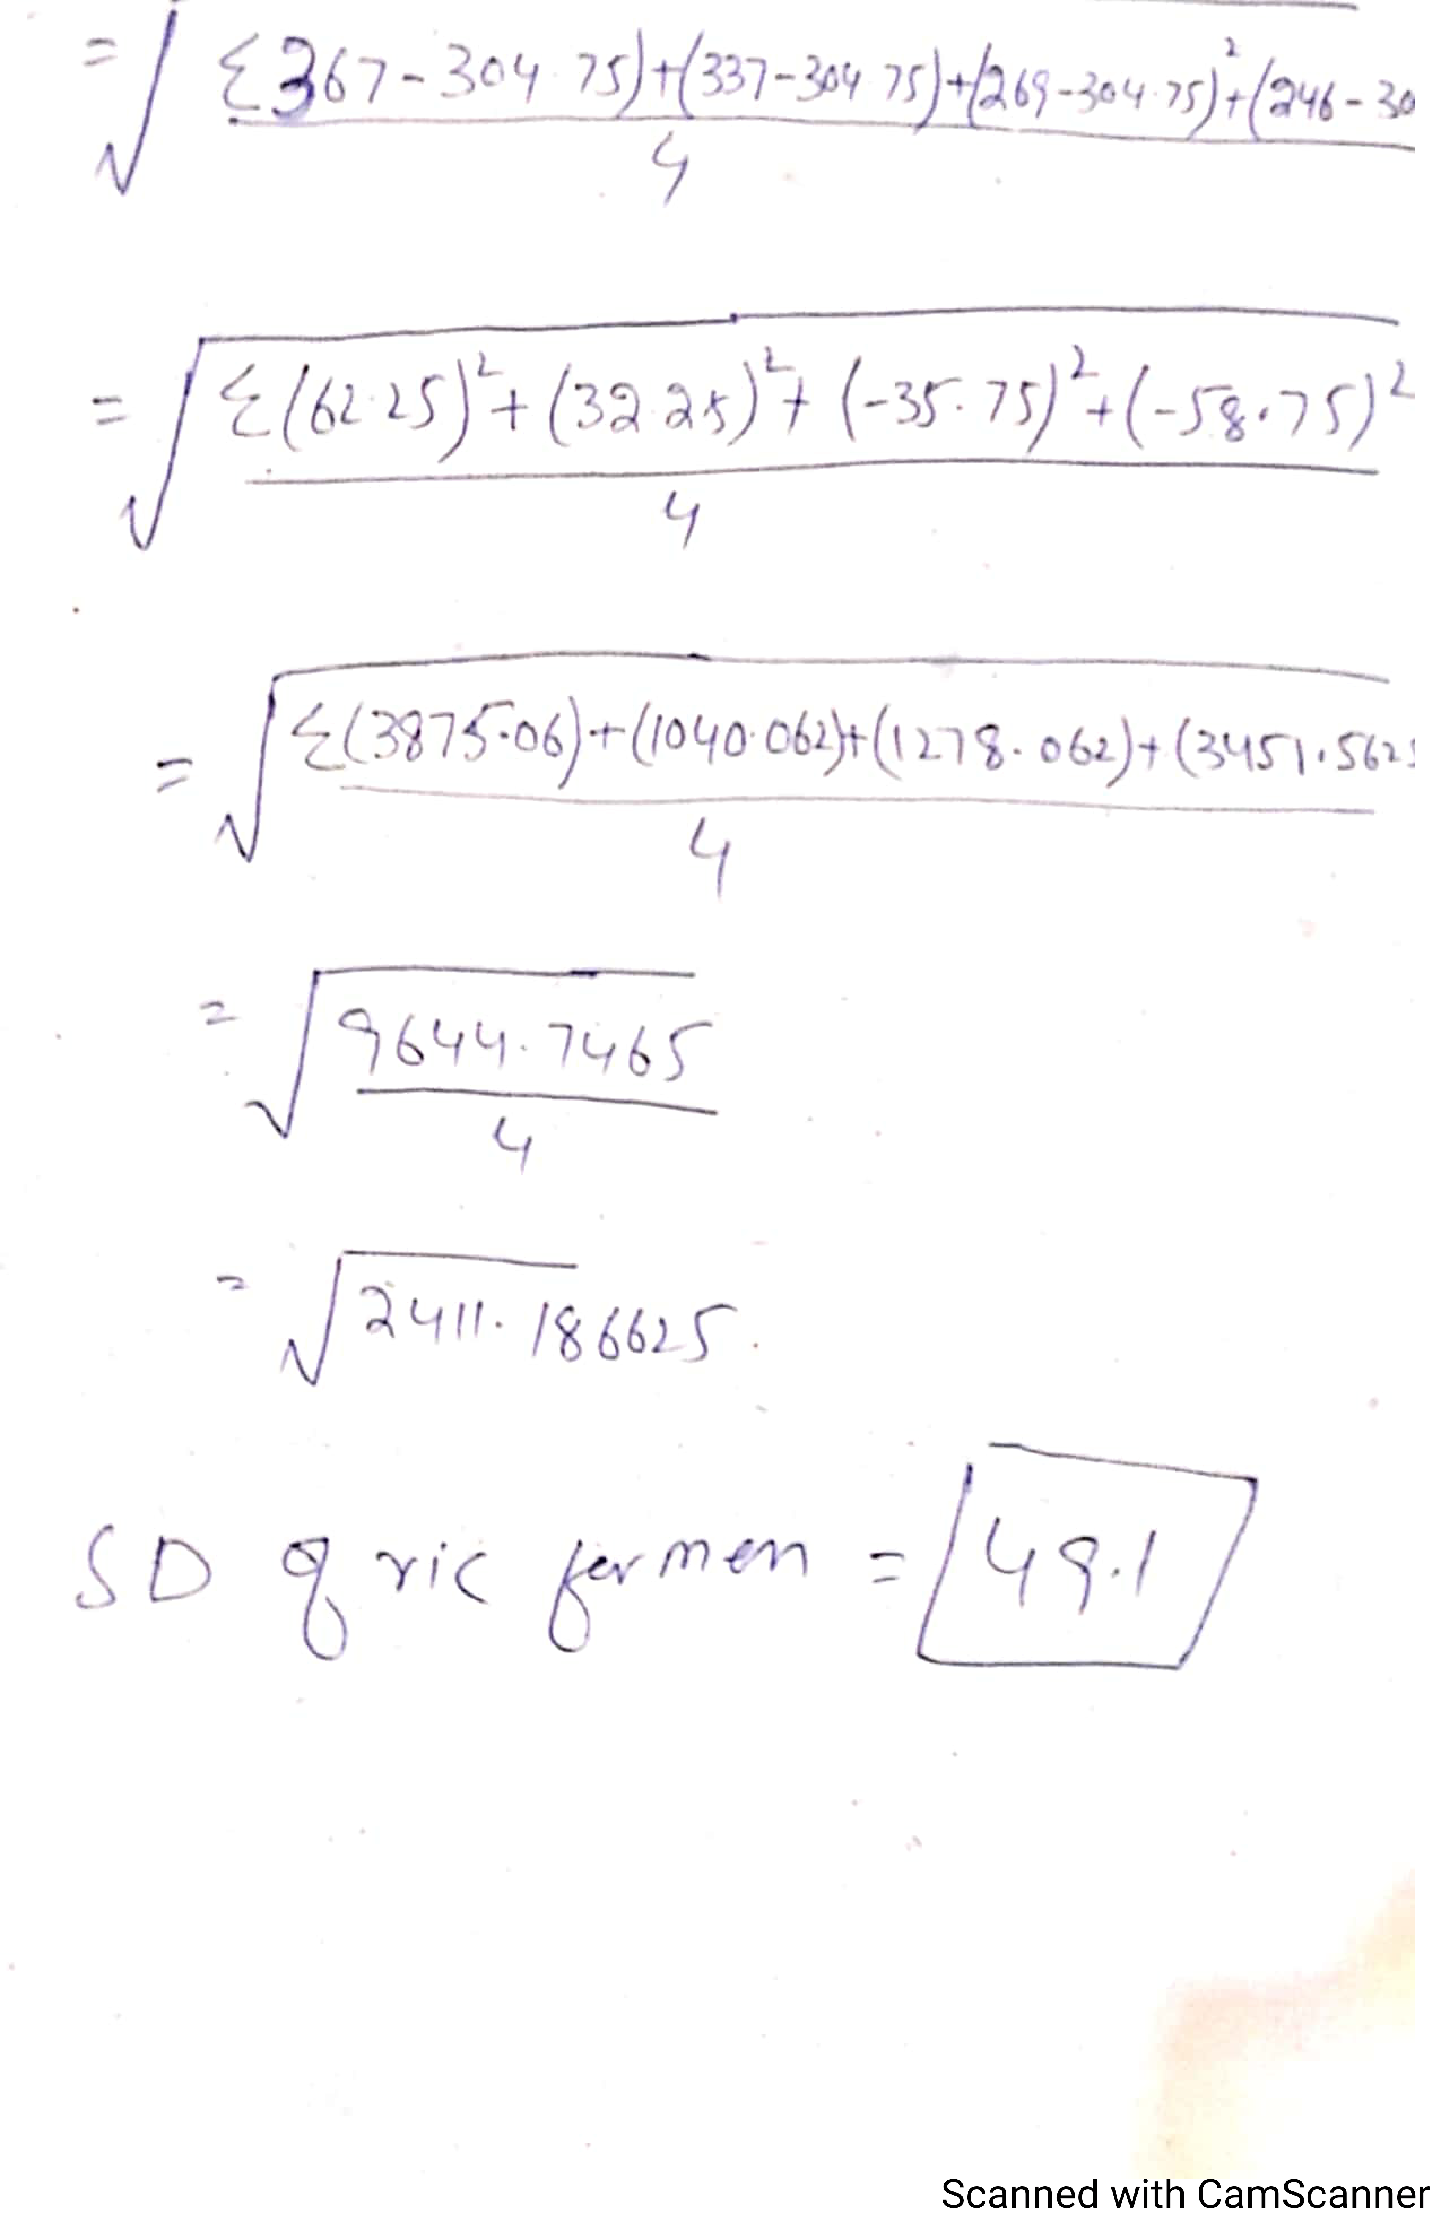 = √ Σ367-304.75)+(337-304.75)+(269-304.75)²+(246-30
4
= √ Σ(62.25)²+(32.25)²+(-35.75)²+(-58.75)²
4
= √ Σ(3875.06)+(1040.062)+(1278.062)+(3451.562
4
= √ 9644.7465
4
= √ 2411.186625.
SD of ric for men = 49.1
Scanned with CamScanner